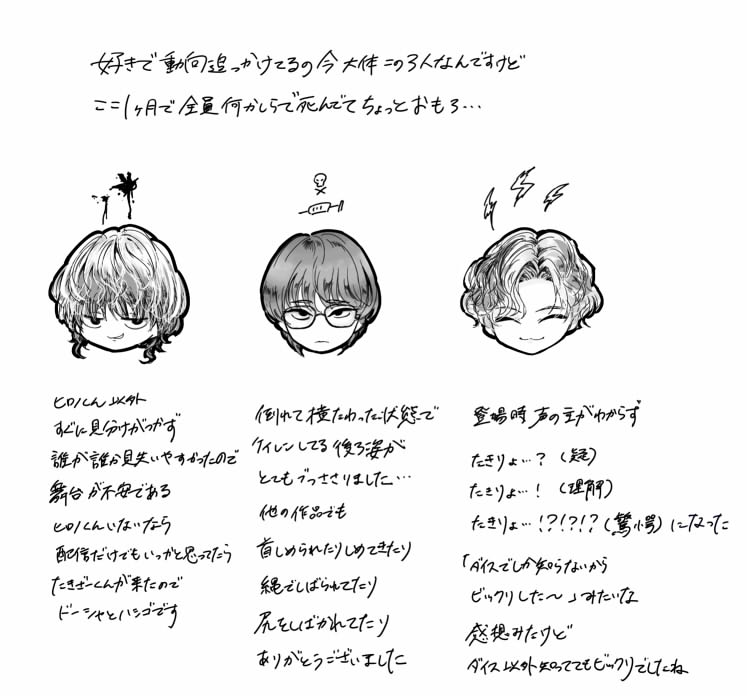 好きで動向追っかけてるの今大体この3人なんですけど
ここ1ヶ月で全員何かしらで死んでてちょっとおもろ…
ヒロくん以外
すぐに見分けがつかず
誰が誰か見失いやすかったので
舞台が不安である
ヒロくんいないなら
配信だけでもいっかと思ってたら
たきざーくんが来たので
ドーシャとハシゴです
倒れて横たわった状態で
ケイレンしてる後ろ姿が
とてもブッささりました…
他の作品でも
首しめられたりしめてきたり
縄でしばられてたり
尻をしばかれてたり
ありがとうございました
登場時声の主がわからず
たきりょ…?(疑)
たきりょ…!(理解)
たきりょ…!?!?!?(驚愕)になった
「ダイスでしか知らないから
ビックリした〜」みたいな
感想みたけど
ダイス以外知っててもビックリでしたね